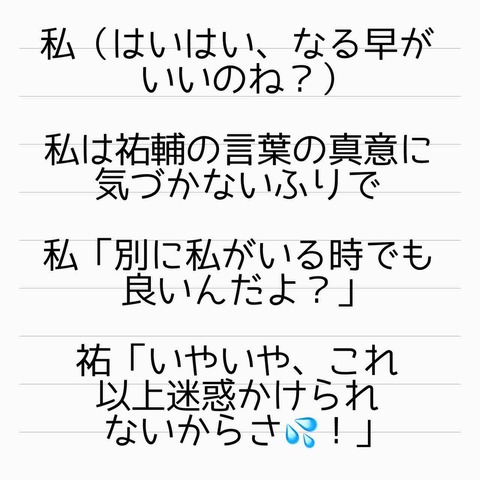 私（はいはい、なる早が
いいのね？）
私は祐輔の言葉の真意に
気づかないふりで
私「別に私がいる時でも
良いんだよ？」
祐「いやいや、これ
以上迷惑かけられ
ないからさ💦！」